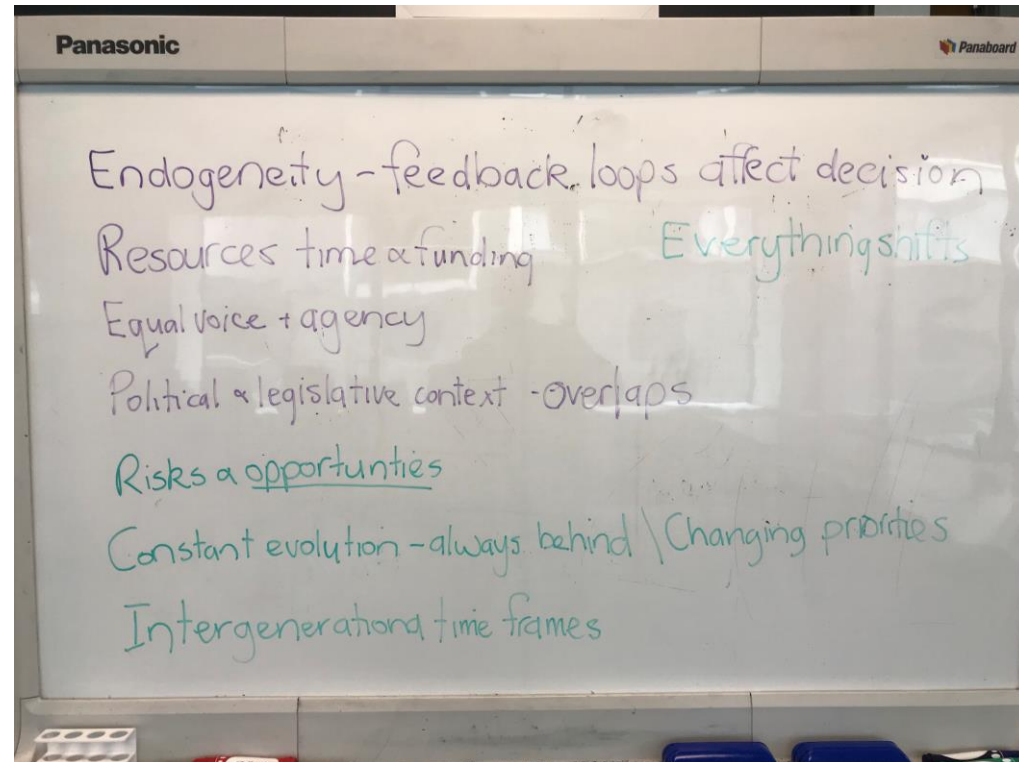 Panasonic
Panaboard
Endogeneity - feedback loops affect decision
Resources time & funding
Everything shifts
Equal voice + agency
Political & legislative context - overlaps
Risks & opportunties
Constant evolution - always behind \ Changing priorities
Intergenerational time frames